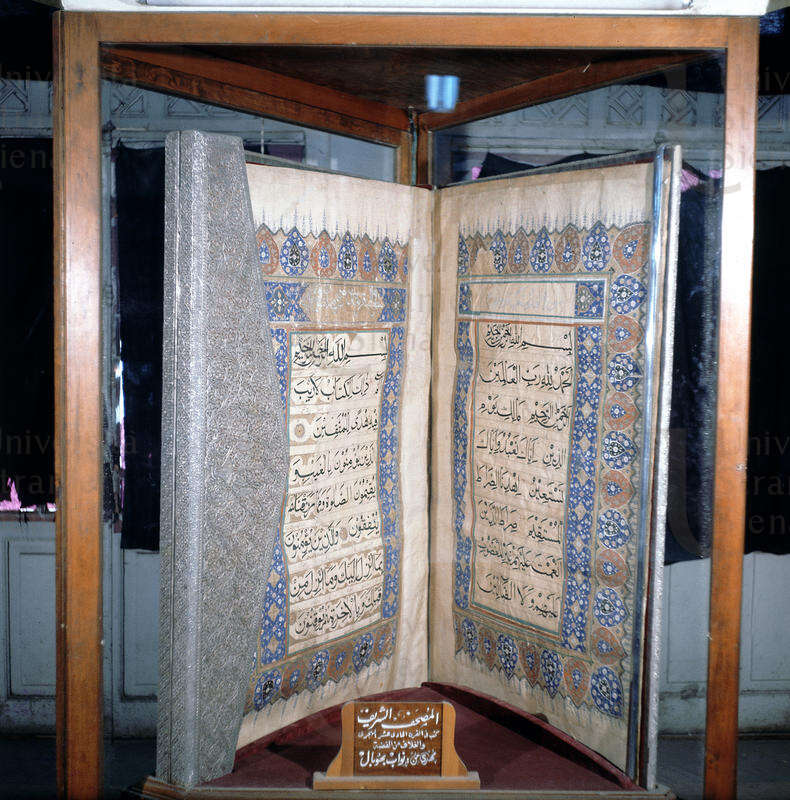 بسم الله الرحمن الرحيم
الحمد لله رب العالمين
الرحمن الرحيم مالك يوم
الدين اياك نعبد واياك
نستعين اهدنا الصراط
المستقيم صراط الذين
انعمت عليهم غير المغضوب
عليهم ولا الضالين
بسم الله الرحمن الرحيم
ذلك الكتاب لا ريب
فيه هدى للمتقين
الذين يؤمنون بالغيب و
يقيمون الصلوة ومما رزقناهم
ينفقون والذين يؤمنون
بما انزل اليك وما انزل من
قبلك وبالاخرة هم يوقنون
المصحف الشريف
كتب في القرن الحادي عشر الهجري
والغلاف من الفضة
نواب بهوبال